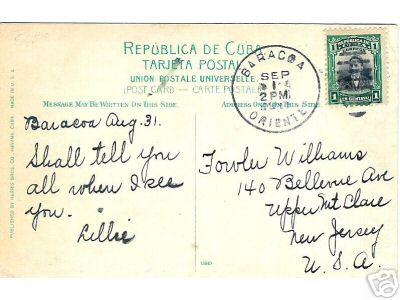 REPÚBLICA DE CUBA
TARJETA POSTAL
UNION POSTALE UNIVERSELLE
(POST CARD — CARTE POSTALE)
MESSAGE MAY BE WRITTEN ON THIS SIDE.
ADDRESS ON THIS SIDE.
BARACOA
SEP
1
PM
ORIENTE
1
1
UN CENTAVO
MADE IN U. S. A.
PUBLISHED BY HARRIS BROS. CO. HAVANA, CUBA.
Baracoa Aug. 31.
Shall tell you
all when I see
you.
Lillie
Fowler Williams
140 Bellevue Ave
Upper Mt Clare
New Jersey
U. S. A.
eBay